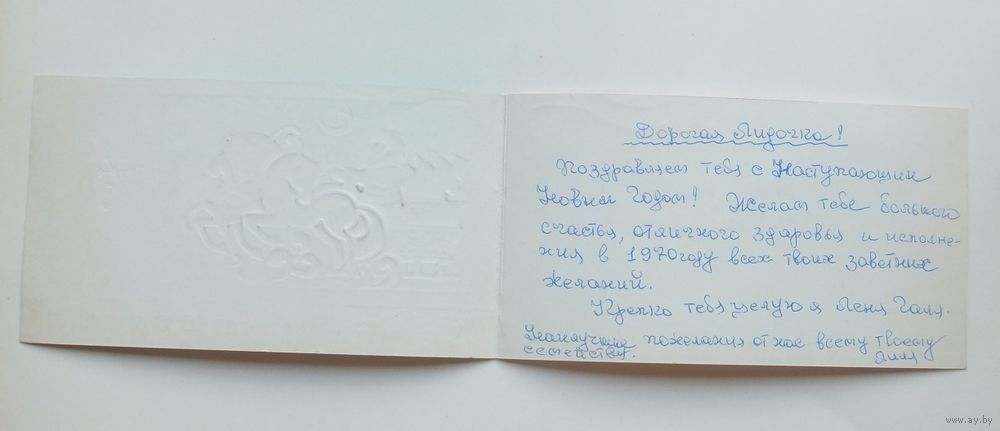 Дорогая Лидочка!
Поздравляем тебя с Наступающим
Новым Годом! Желаем тебе большого
счастья, отличного здоровья и исполне-
ния в 1970 году всех твоих заветних
желаний.
Крепко тебя целую я Леня Галя.
Наилучшие пожелания от нас всему твоему
семейству.
www.ay.by